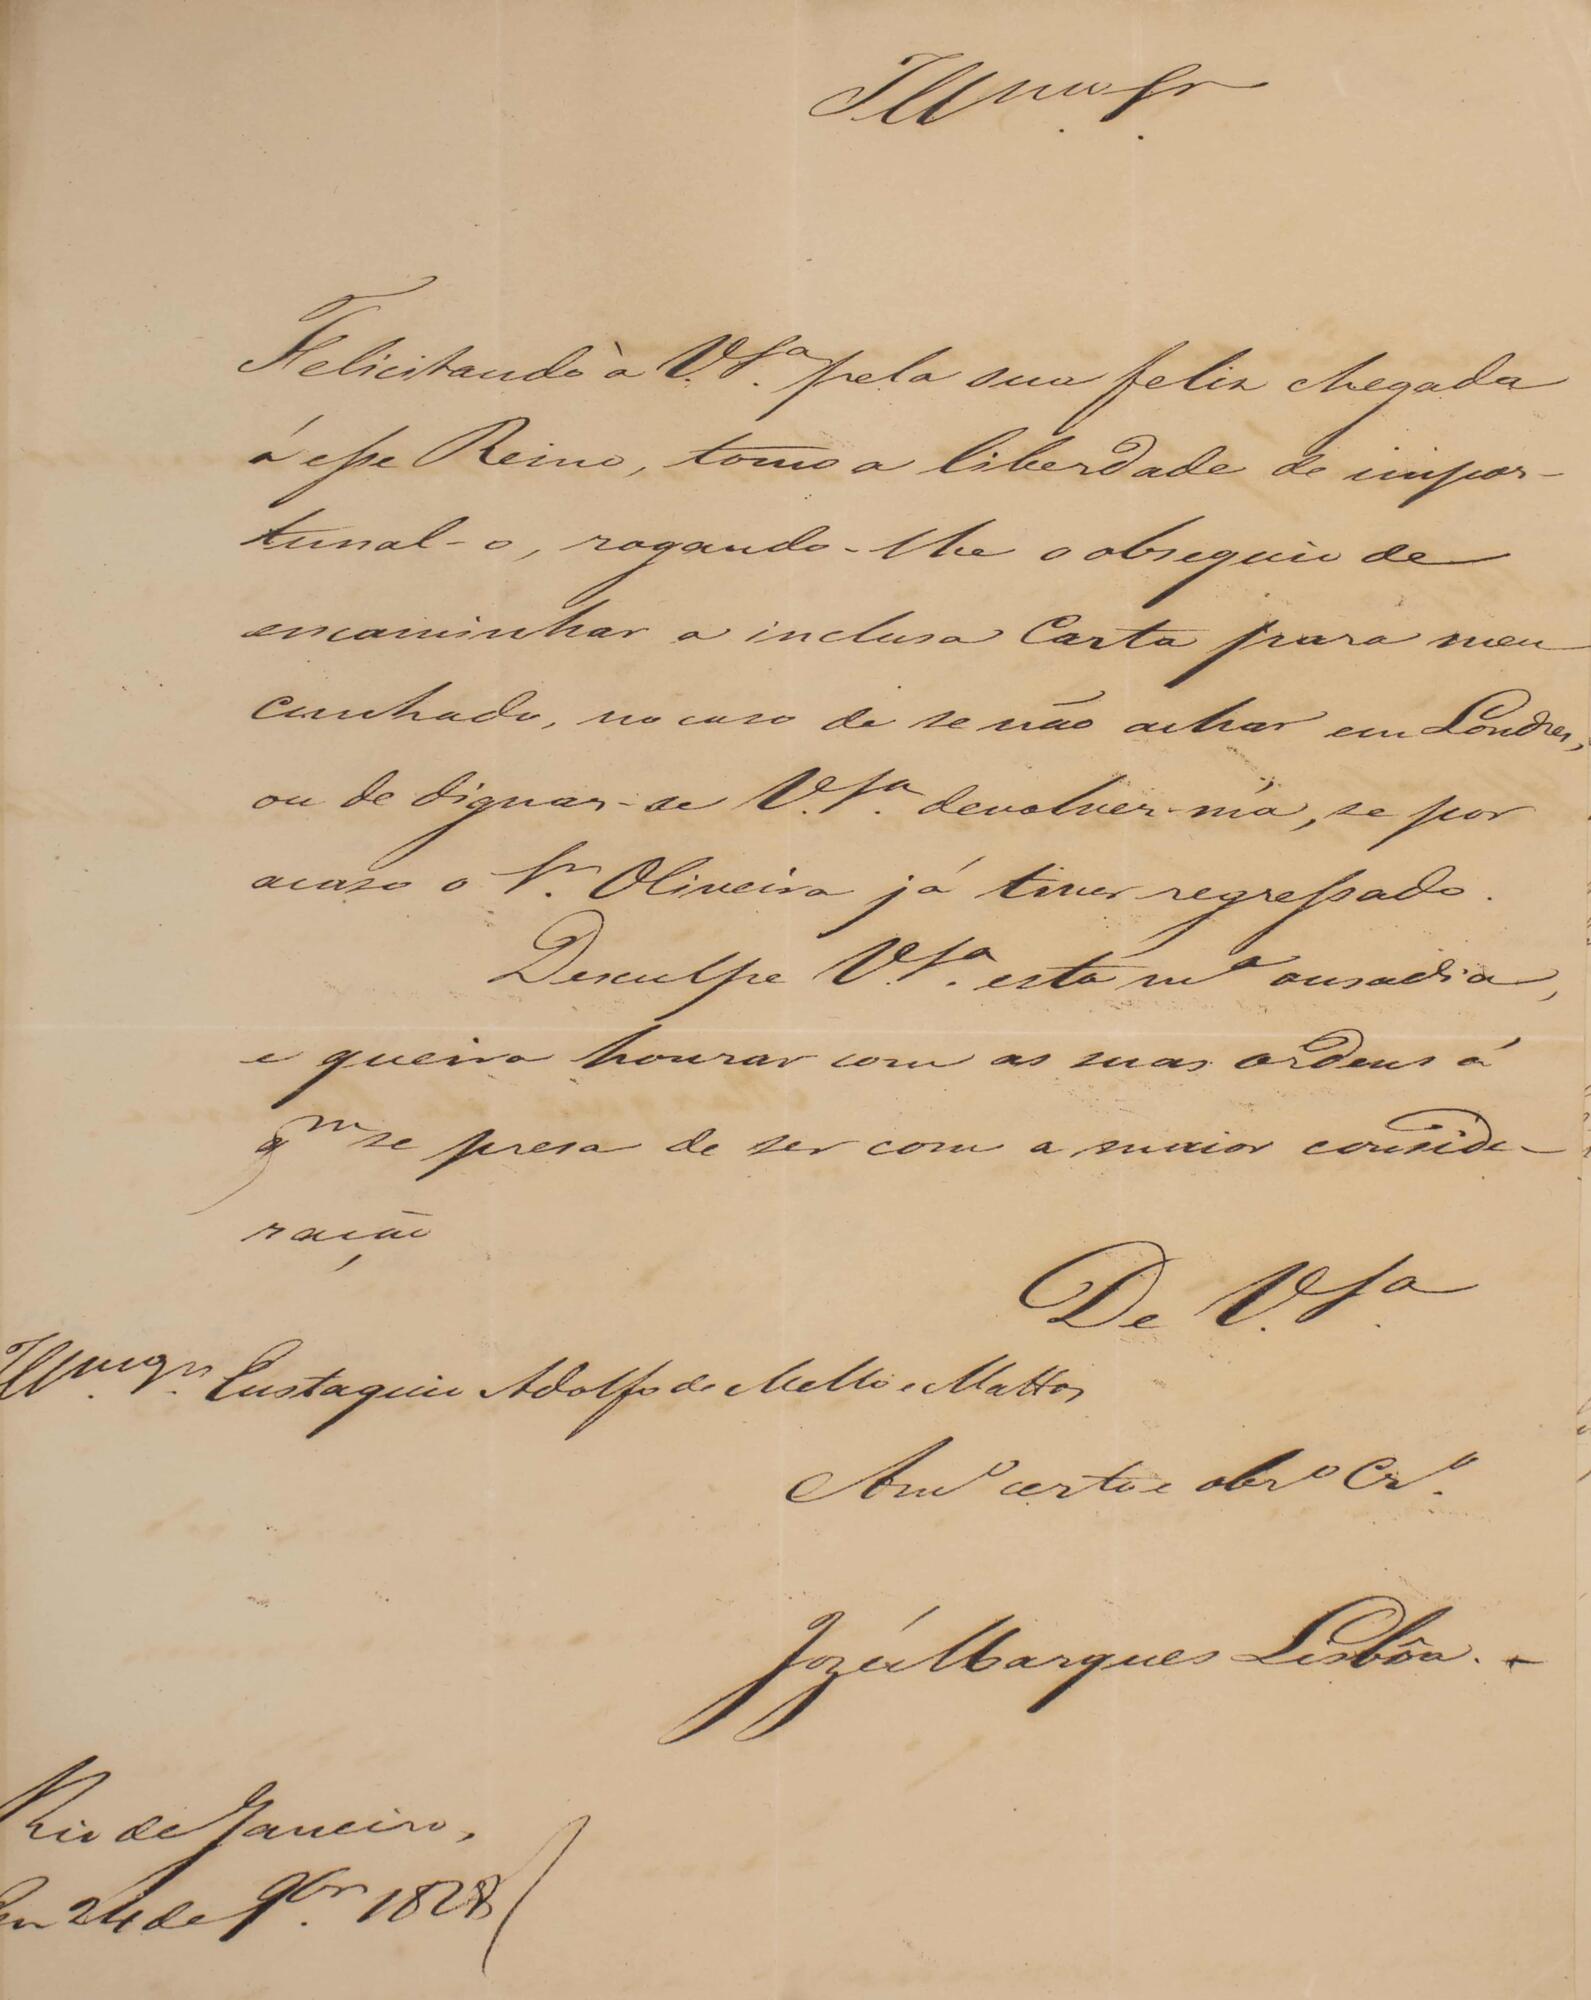 Illmo. Sr.
Felicitando à V. Sa. pela sua feliz chegada
á esse Reino, tomo a liberdade de impor-
tunal-o, rogando-lhe o obsequio de
encaminhar a inclusa Carta para meu
cunhado, no caso de se não achar em Londres,
ou de dignar-se V. Sa. devolver-m'a, se por
acaso o Sr. Oliveira já tiver regressado.
Desculpe V. Sa. esta ma ousadia,
e queira honrar com as suas ordens á
qm se presa de ser com a maior conside-
ração
De V. Sa.
Illmo. Sr. Eustaquio Adolfo de Mello e Mattos
Amo certo e obro Cro.
Jozé Marques Lisbôa.
Rio de Janeiro,
Em 24 de 9br. 1828